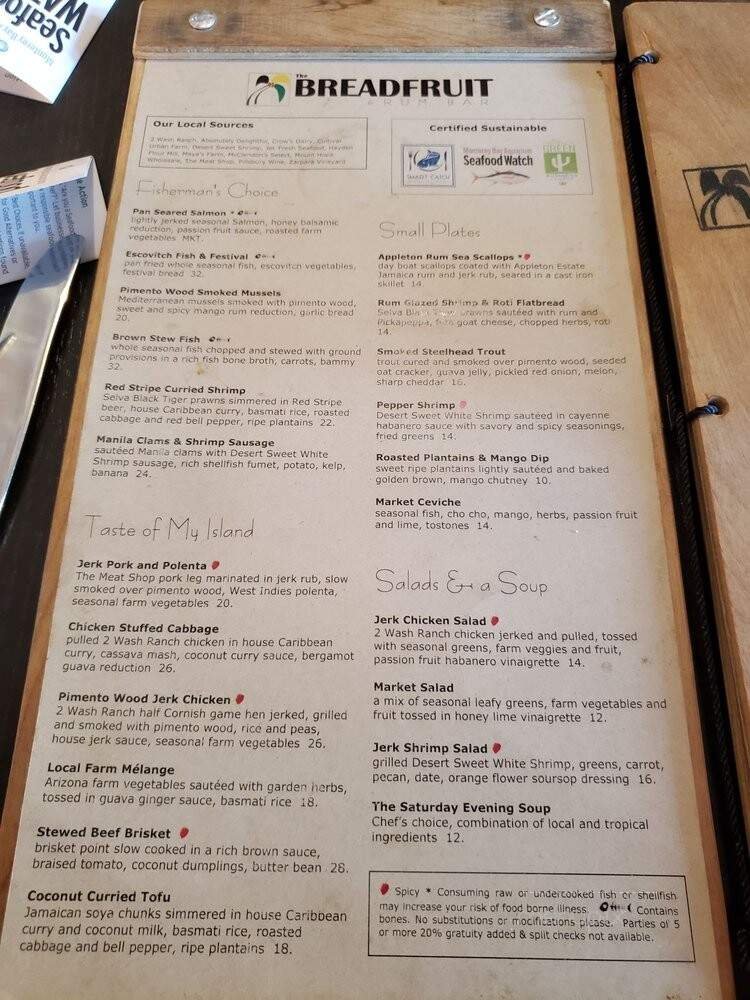 The
BREADFRUIT
& RUM BAR
Our Local Sources
2 Wash Ranch, Absolutely Delightful, Crow's Dairy, Cultural
Urban Farm, Desert Sweet Shrimp, Jet Fresh Seafood, Hayden
Flour Mill, Maya's Farm, McClendon's Select, Mount Hope
Wholesale, The Meat Shop, Pillsbury Wine, Zarpara Vineyard
Certified Sustainable
SMART CATCH
Monterey Bay Aquarium
Seafood Watch
GREEN
Fisherman's Choice
Pan Seared Salmon *
lightly jerked seasonal Salmon, honey balsamic
reduction, passion fruit sauce, roasted farm
vegetables MKT.
Escovitch Fish & Festival
pan fried whole seasonal fish, escovitch vegetables,
festival bread 32.
Pimento Wood Smoked Mussels
Mediterranean mussels smoked with pimento wood,
sweet and spicy mango rum reduction, garlic bread
20.
Brown Stew Fish
whole seasonal fish chopped and stewed with ground
provisions in a rich fish bone broth, carrots, bammy
32.
Red Stripe Curried Shrimp
Selva Black Tiger prawns simmered in Red Stripe
beer, house Caribbean curry, basmati rice, roasted
cabbage and red bell pepper, ripe plantains 22.
Manila Clams & Shrimp Sausage
sautéed Manila clams with Desert Sweet White
Shrimp sausage, rich shellfish fumet, potato, kelp,
banana 24.
Taste of My Island
Jerk Pork and Polenta
The Meat Shop pork leg marinated in jerk rub, slow
smoked over pimento wood, West Indies polenta,
seasonal farm vegetables 20.
Chicken Stuffed Cabbage
pulled 2 Wash Ranch chicken in house Caribbean
curry, cassava mash, coconut curry sauce, bergamot
guava reduction 26.
Pimento Wood Jerk Chicken
2 Wash Ranch half Cornish game hen jerked, grilled
and smoked with pimento wood, rice and peas,
house jerk sauce, seasonal farm vegetables 26.
Local Farm Mélange
Arizona farm vegetables sautéed with garden herbs,
tossed in guava ginger sauce, basmati rice 18.
Stewed Beef Brisket
brisket point slow cooked in a rich brown sauce,
braised tomato, coconut dumplings, butter bean 28.
Coconut Curried Tofu
Jamaican soya chunks simmered in house Caribbean
curry and coconut milk, basmati rice, roasted
cabbage and bell pepper, ripe plantains 18.
Small Plates
Appleton Rum Sea Scallops *
day boat scallops coated with Appleton Estate
Jamaica rum and jerk rub, seared in a cast iron
skillet 14
Rum Glazed Shrimp & Roti Flatbread
Selva Black Tiger prawns sautéed with rum and
Pickapeppa, feta goat cheese, chopped herbs, roti
14.
Smoked Steelhead Trout
trout cured and smoked over pimento wood, seeded
oat cracker, guava jelly, pickled red onion, melon,
sharp cheddar 16.
Pepper Shrimp
Desert Sweet White Shrimp sautéed in cayenne
habanero sauce with savory and spicy seasonings,
fried greens 14.
Roasted Plantains & Mango Dip
sweet ripe plantains lightly sautéed and baked
golden brown, mango chutney 10.
Market Ceviche
seasonal fish, cho cho, mango, herbs, passion fruit
and lime, tostones 14.
Salads & a Soup
Jerk Chicken Salad
2 Wash Ranch chicken jerked and pulled, tossed
with seasonal greens, farm veggies and fruit,
passion fruit habanero vinaigrette 14.
Market Salad
a mix of seasonal leafy greens, farm vegetables and
fruit tossed in honey lime vinaigrette 12.
Jerk Shrimp Salad
grilled Desert Sweet White Shrimp, greens, carrot,
pecan, date, orange flower soursop dressing 16.
The Saturday Evening Soup
Chef's choice, combination of local and tropical
ingredients 12.
Spicy * Consuming raw or undercooked fish or shellfish
may increase your risk of food borne illness. Contains
bones. No substitutions or modifications please. Parties of 5
or more 20% gratuity added & split checks not available.
Seafood
WA
Monterey Bay